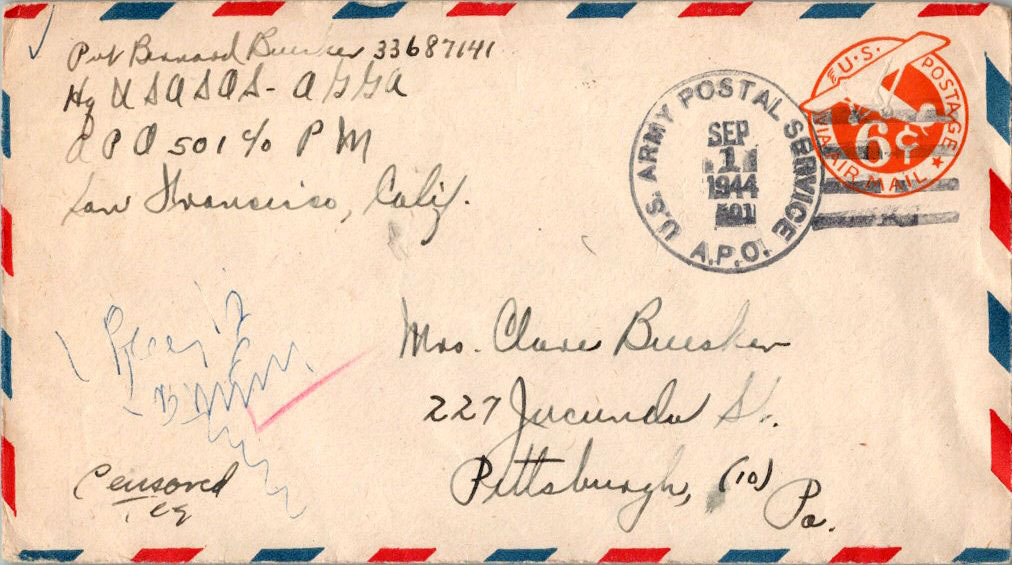 Pvt Bernard Buesker 33687141
Hq USASOS - AGGA
APO 501 c/o PM
San Francisco, Calif.
U.S. ARMY POSTAL SERVICE
SEP
1
1944
501
A.P.O.
U.S. POSTAGE
6¢
VIA AIR MAIL
Mrs. Clare Buesker
227 Jucunda St.
Pittsburgh, (10)
Pa.
Censored